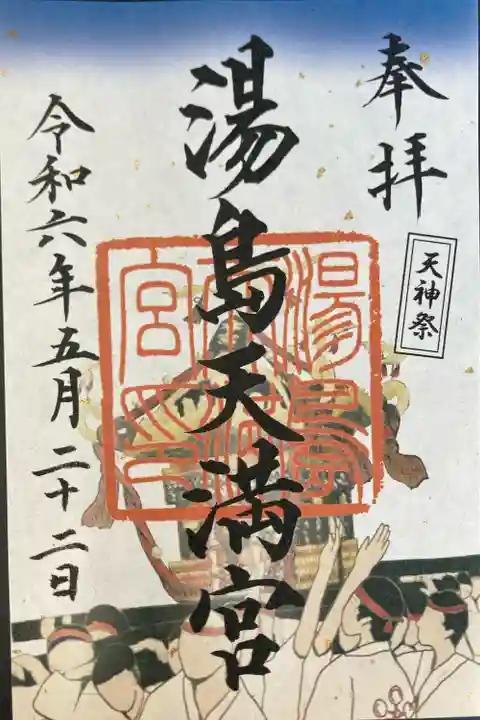 奉拝
天神祭
湯島天満宮
令和六年五月二十二日
湯島
天満
宮印